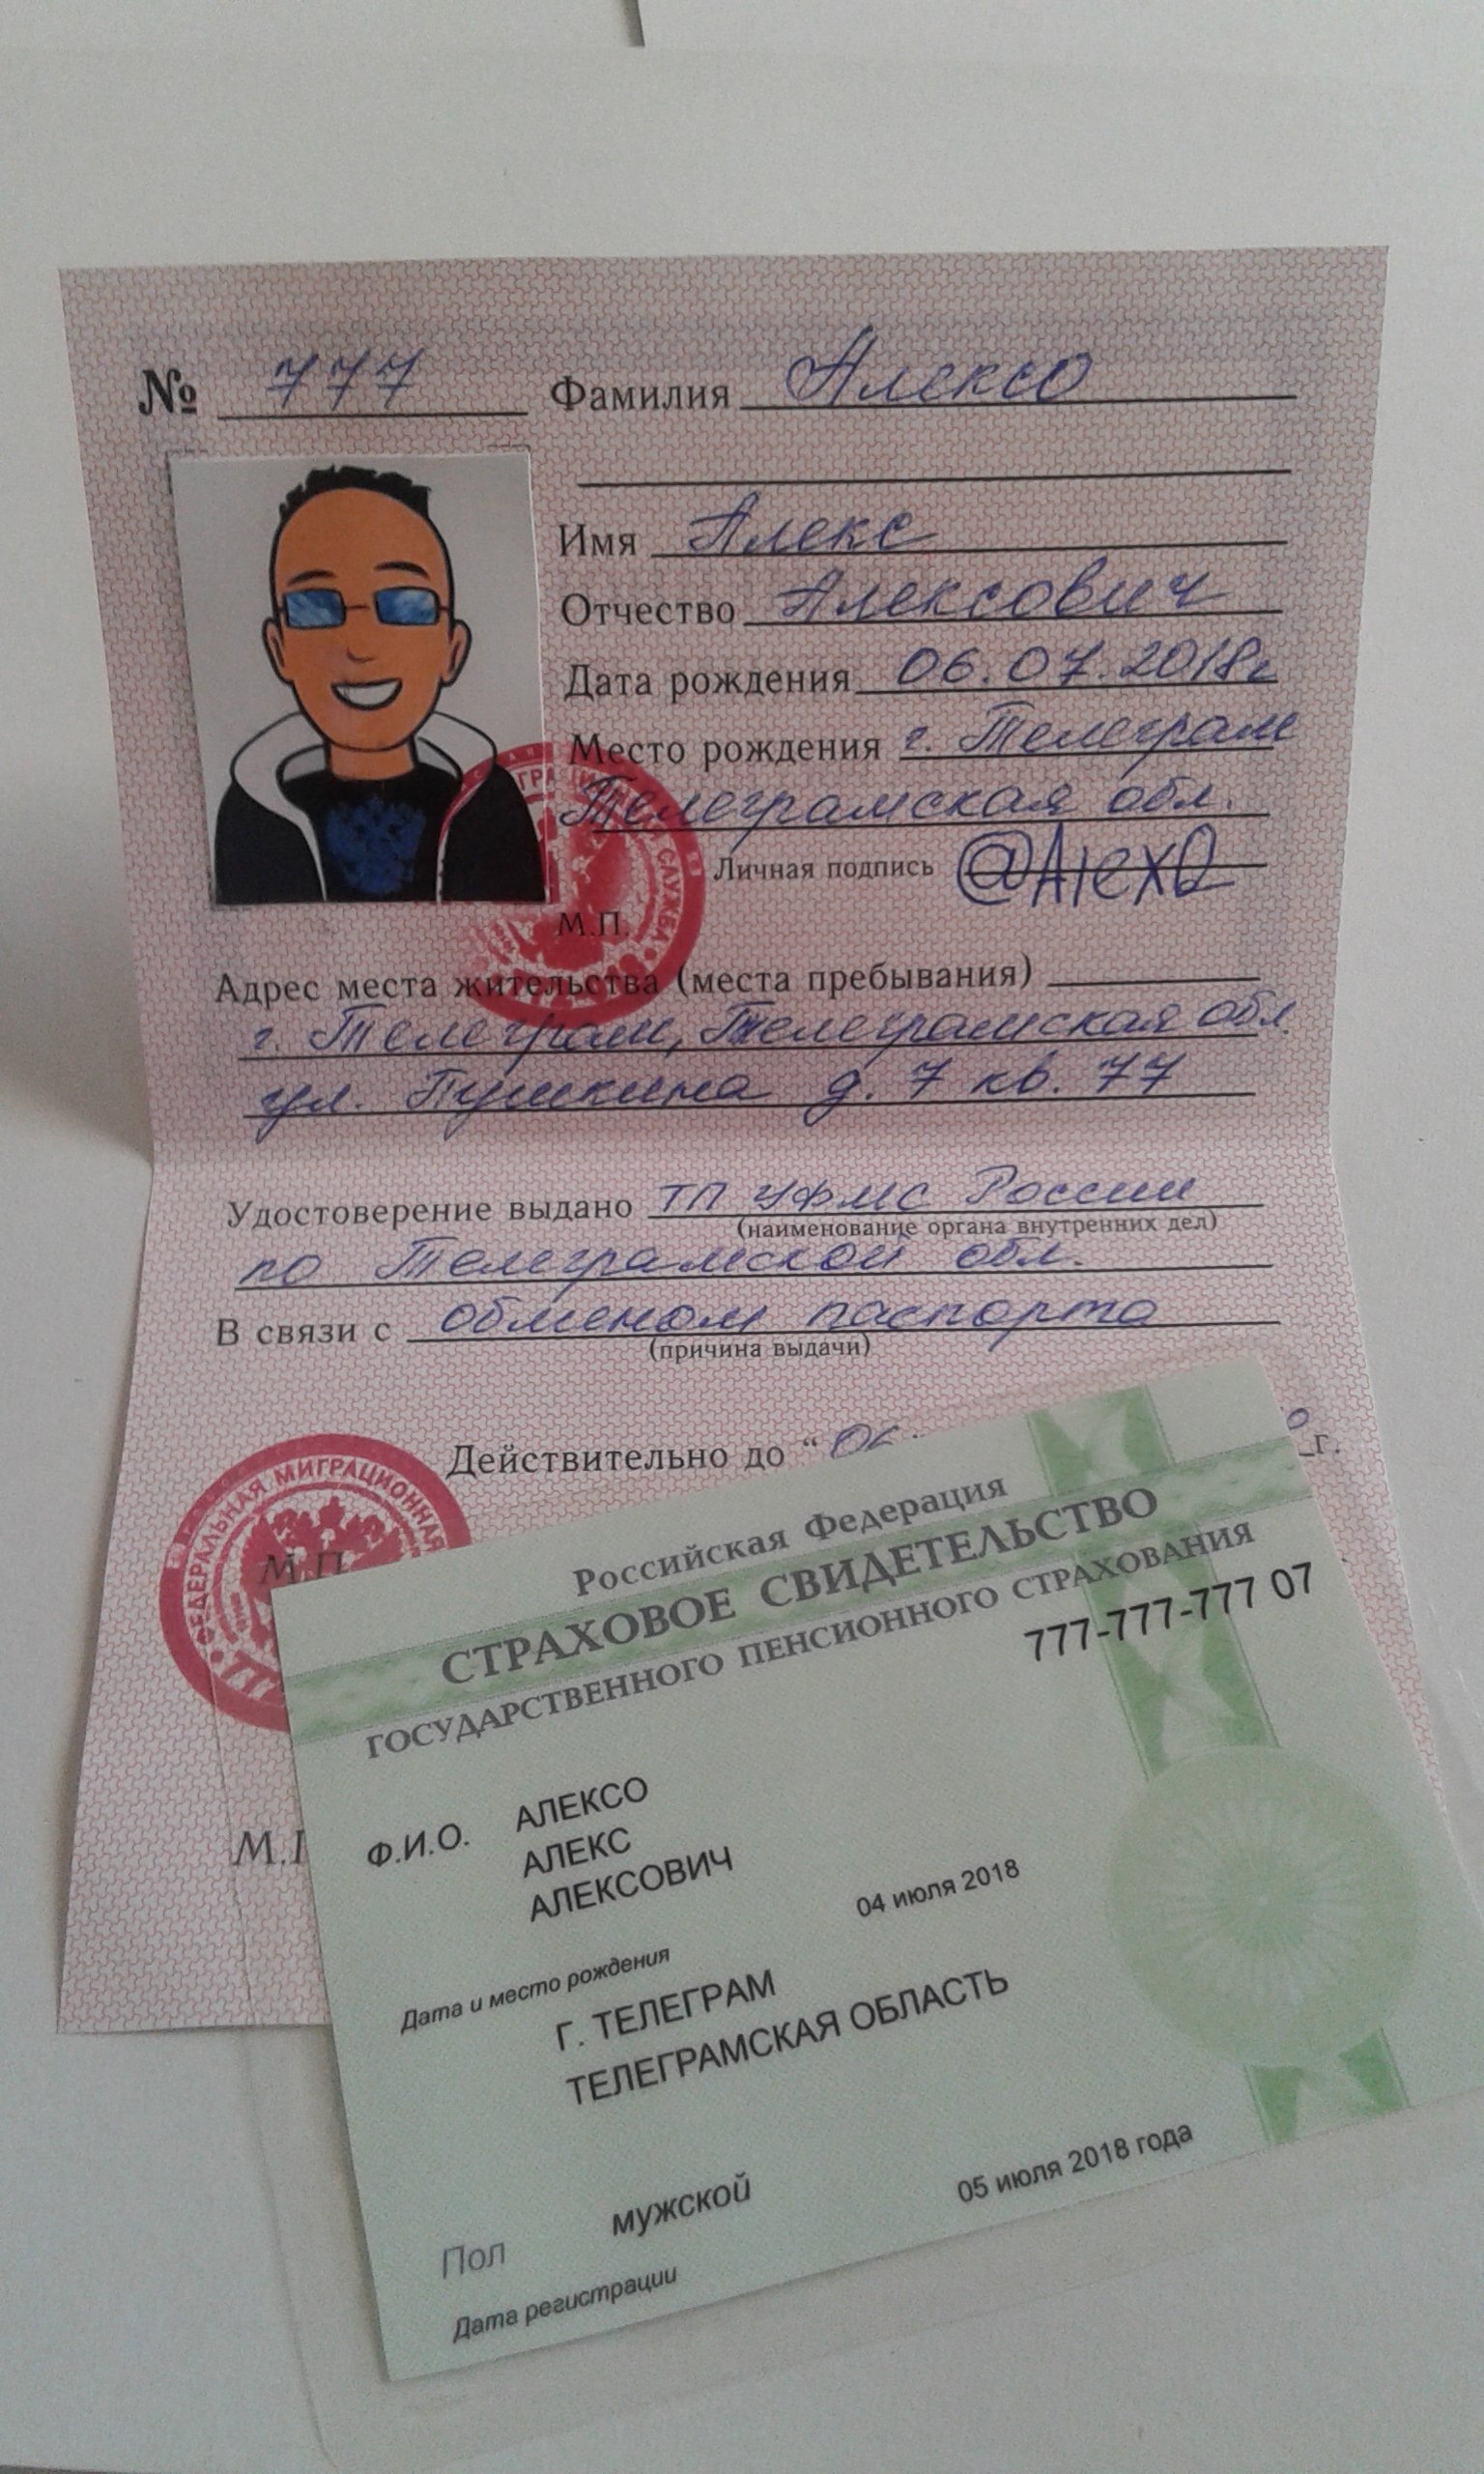 № 777 Фамилия Алексо
Имя Алекс
Отчество Алексович
Дата рождения 06.07.2018г
Место рождения г. Телеграм
Телеграмская обл.
Личная подпись @AlexO
М.П.
Адрес места жительства (места пребывания)
г. Телеграм, Телеграмская обл.
ул. Пушкина д. 7 кв. 77
Удостоверение выдано ТП УФМС России
(наименование органа внутренних дел)
по Телеграмской обл.
В связи с обменом паспорта
(причина выдачи)
Действительно до “ г.
ФЕДЕРАЛЬНАЯ МИГРАЦИОННАЯ
М.П.
Российская Федерация
СТРАХОВОЕ СВИДЕТЕЛЬСТВО
ГОСУДАРСТВЕННОГО ПЕНСИОННОГО СТРАХОВАНИЯ
777-777-777 07
Ф.И.О. АЛЕКСО
АЛЕКС
АЛЕКСОВИЧ
04 июля 2018
Дата и место рождения
Г. ТЕЛЕГРАМ
ТЕЛЕГРАМСКАЯ ОБЛАСТЬ
Пол мужской
05 июля 2018 года
Дата регистрации